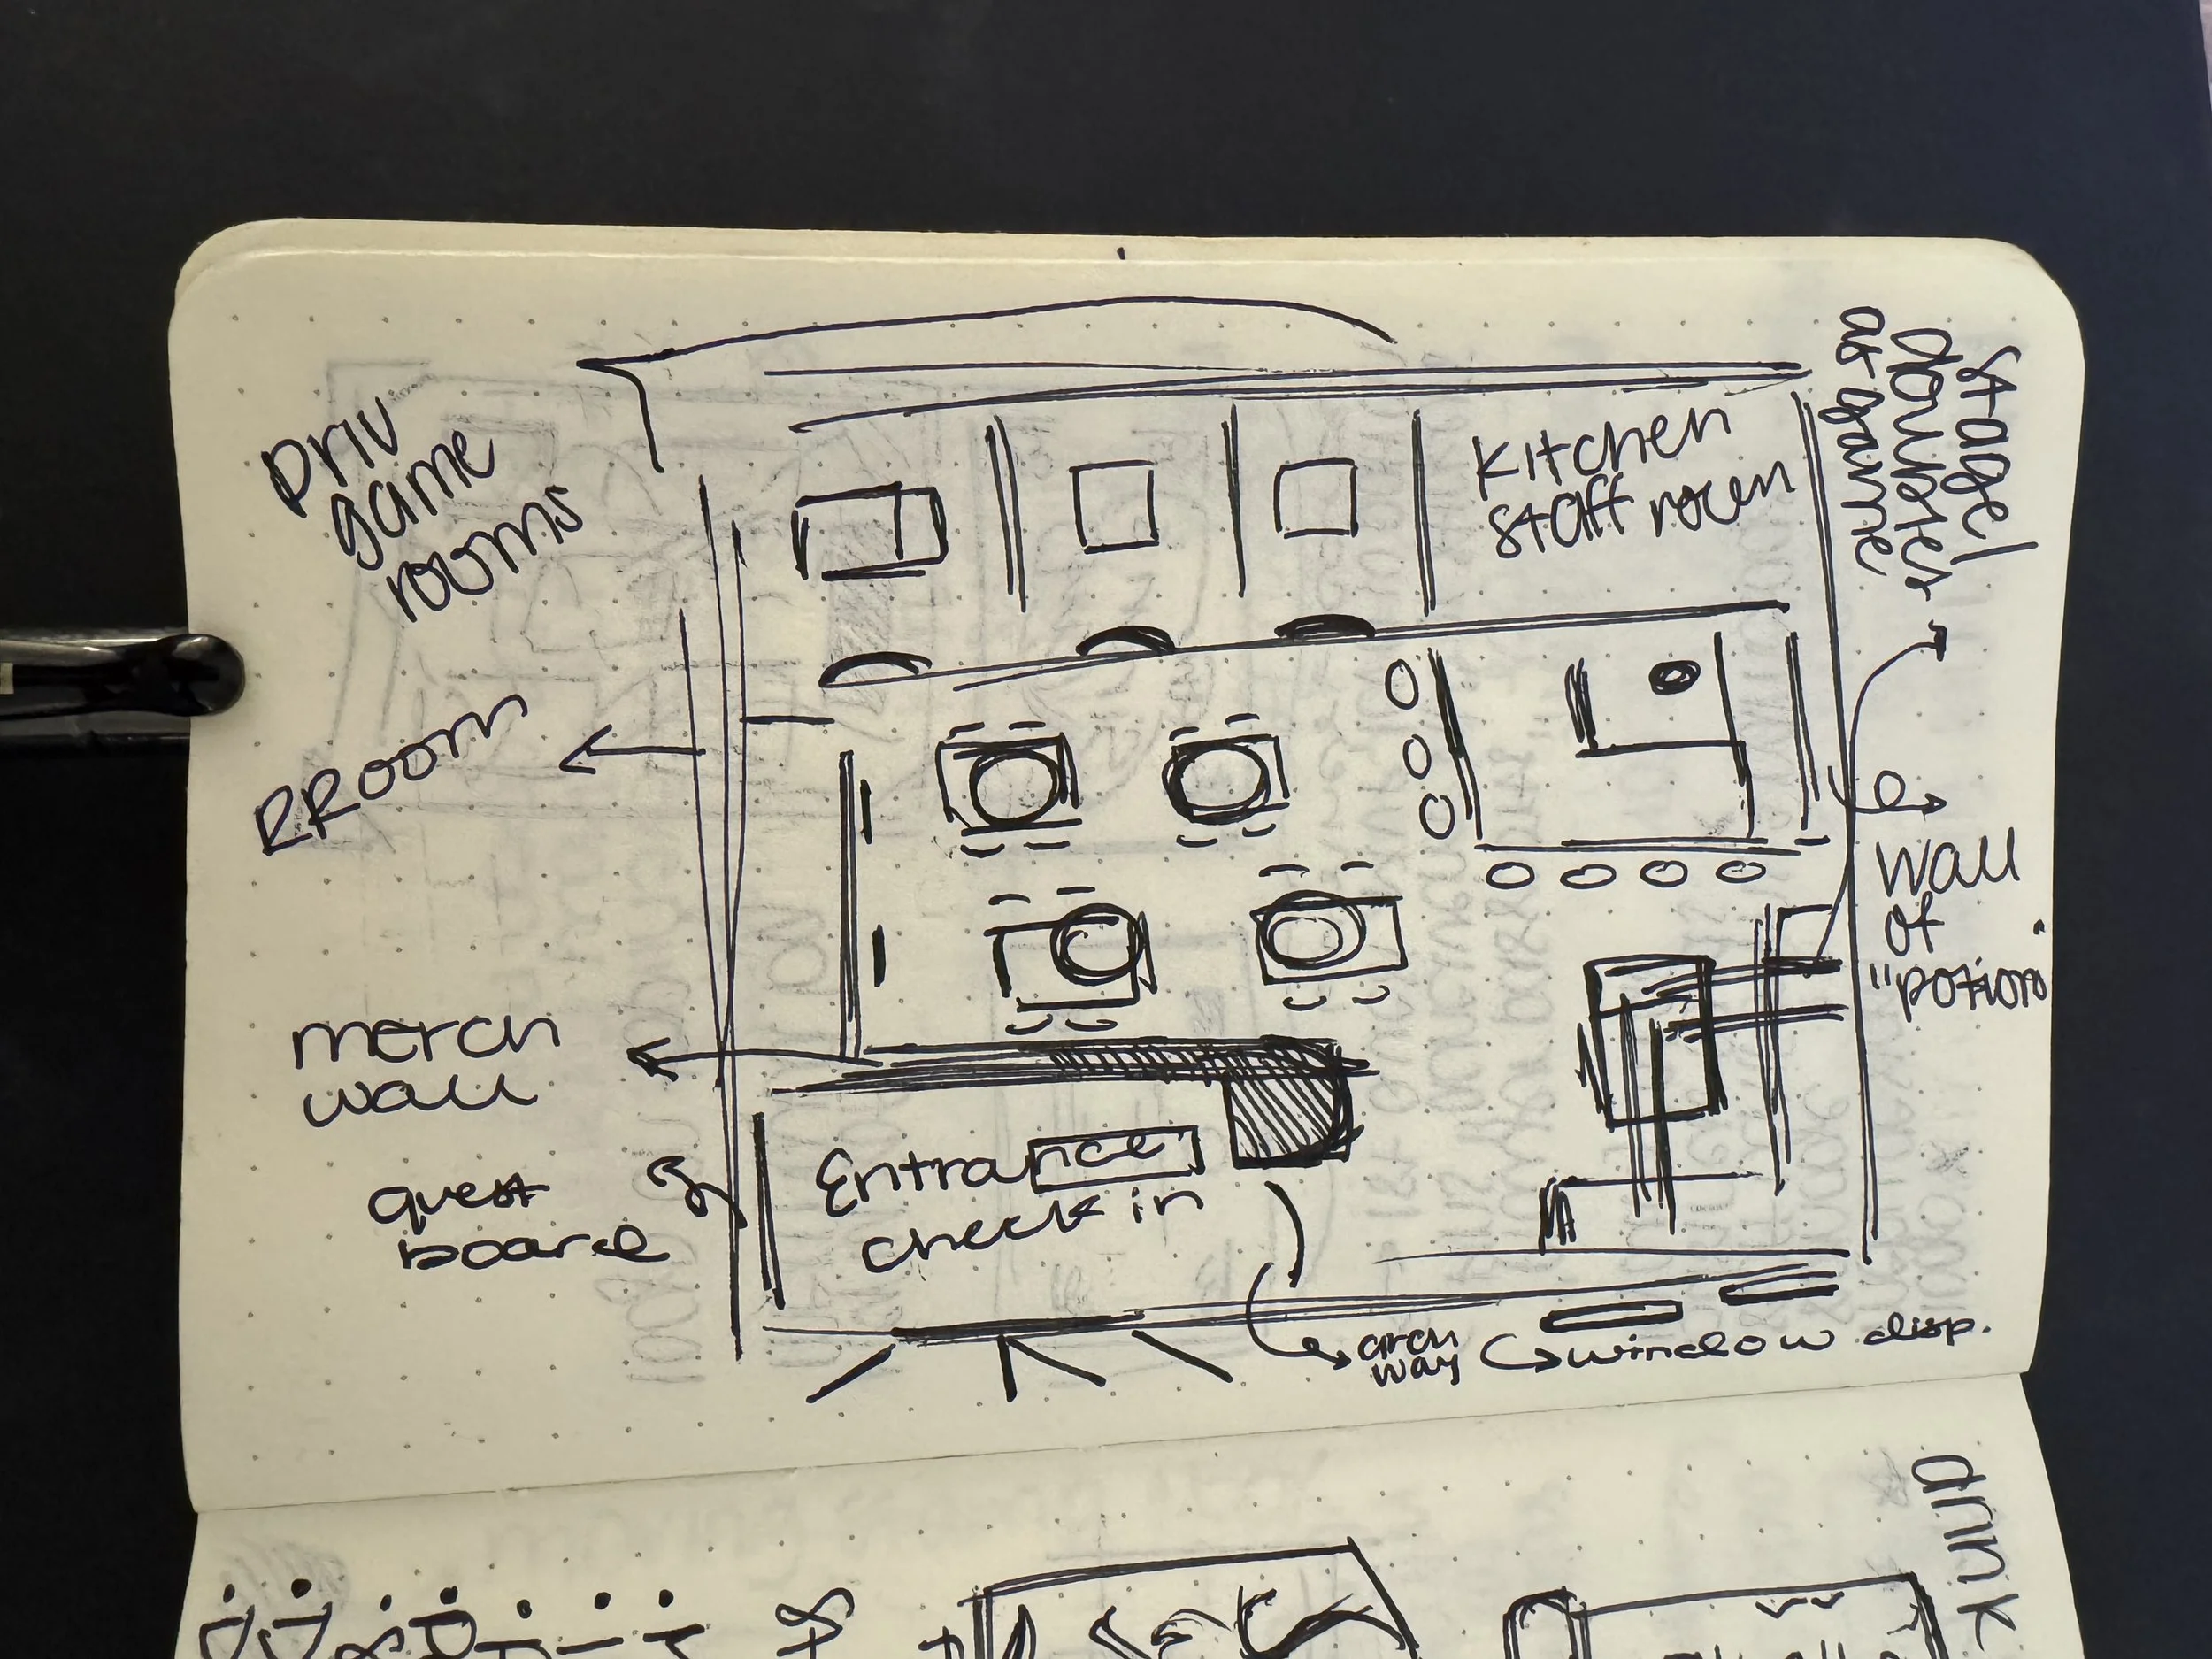 priv
game
rooms
Kitchen
staff room
stage/
doubles
as game
RRoom
wall
of
"potion"
merch
wall
quest
board
Entrance
check in
arch
way
window disp.